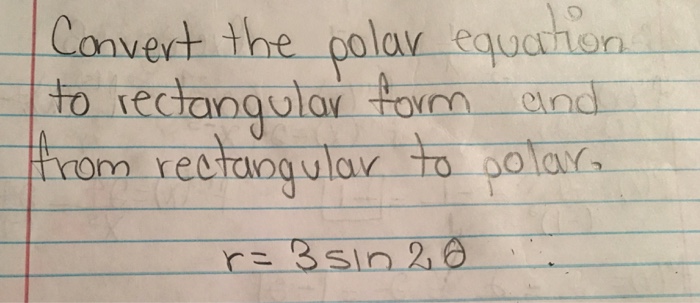 Convert the polar equation
to rectangular form and
from rectangular to polar.
r = 3 sin 2θ